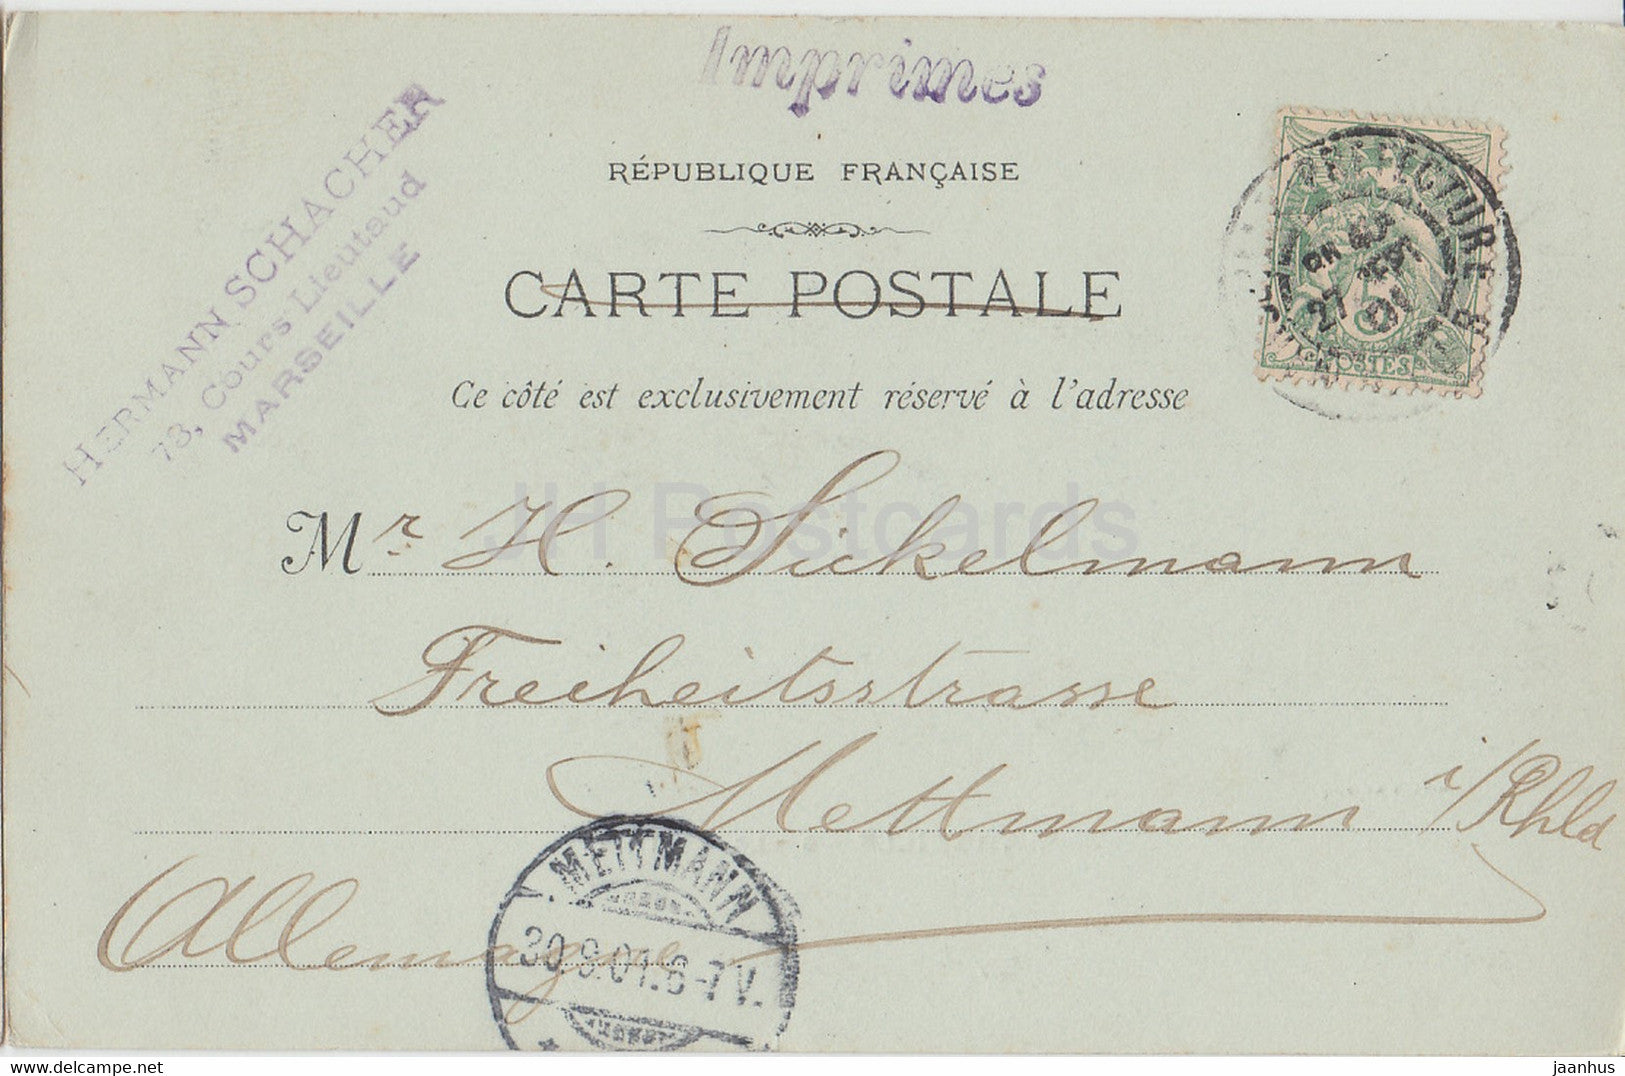 Imprimes
HERMANN SCHACHER
73, Cours Lieutaud
MARSEILLE
RÉPUBLIQUE FRANÇAISE
CARTE POSTALE
Ce côté est exclusivement réservé à l'adresse
PREFECTURE
27
5
POSTES
Mr H. Sickelmann
Freiheitsstrasse
Mettmann i/Rhld
Allemagne
METTMANN
30.9.01.6-7V.
JH Postcards
jaanhus
www.delcampe.net